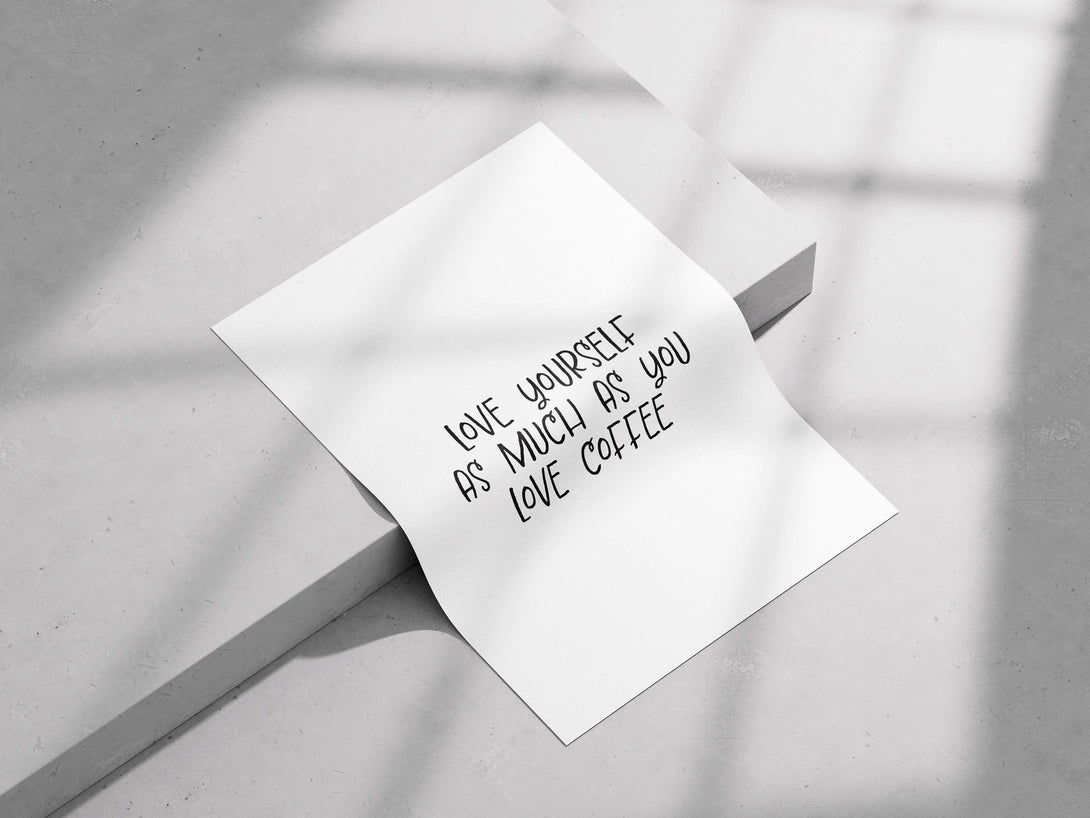 LOVE YOURSELF
AS MUCH AS YOU
LOVE COFFEE